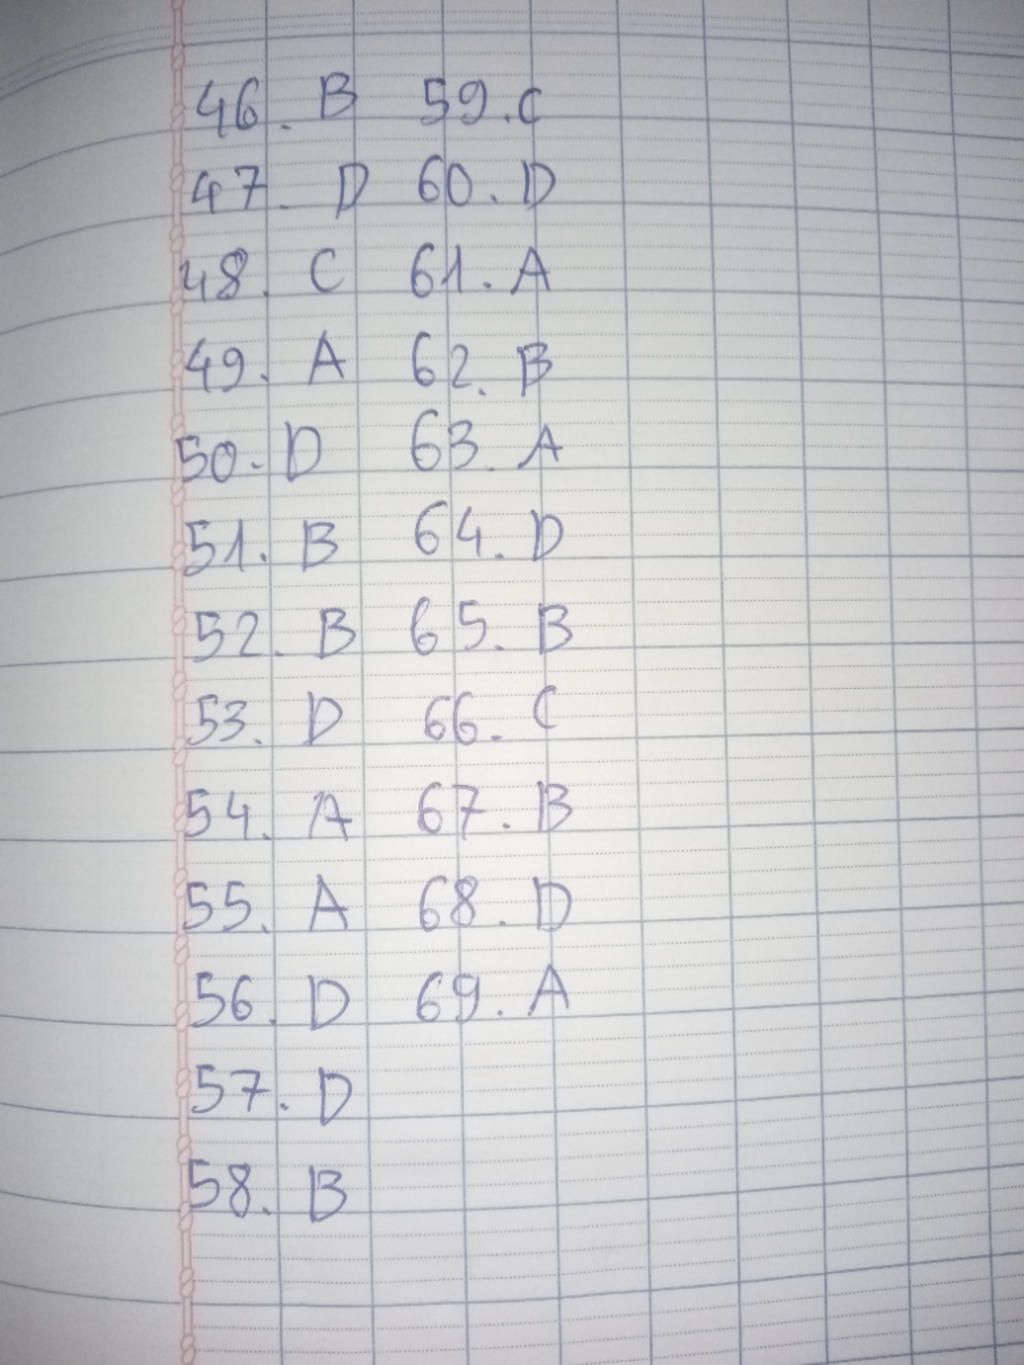 46. B 59. C
47. D 60. D
48. C 61. A
49. A 62. B
50. D 63. A
51. B 64. D
52. B 65. B
53. D 66. C
54. A 67. B
55. A 68. D
56. D 69. A
57. D
58. B